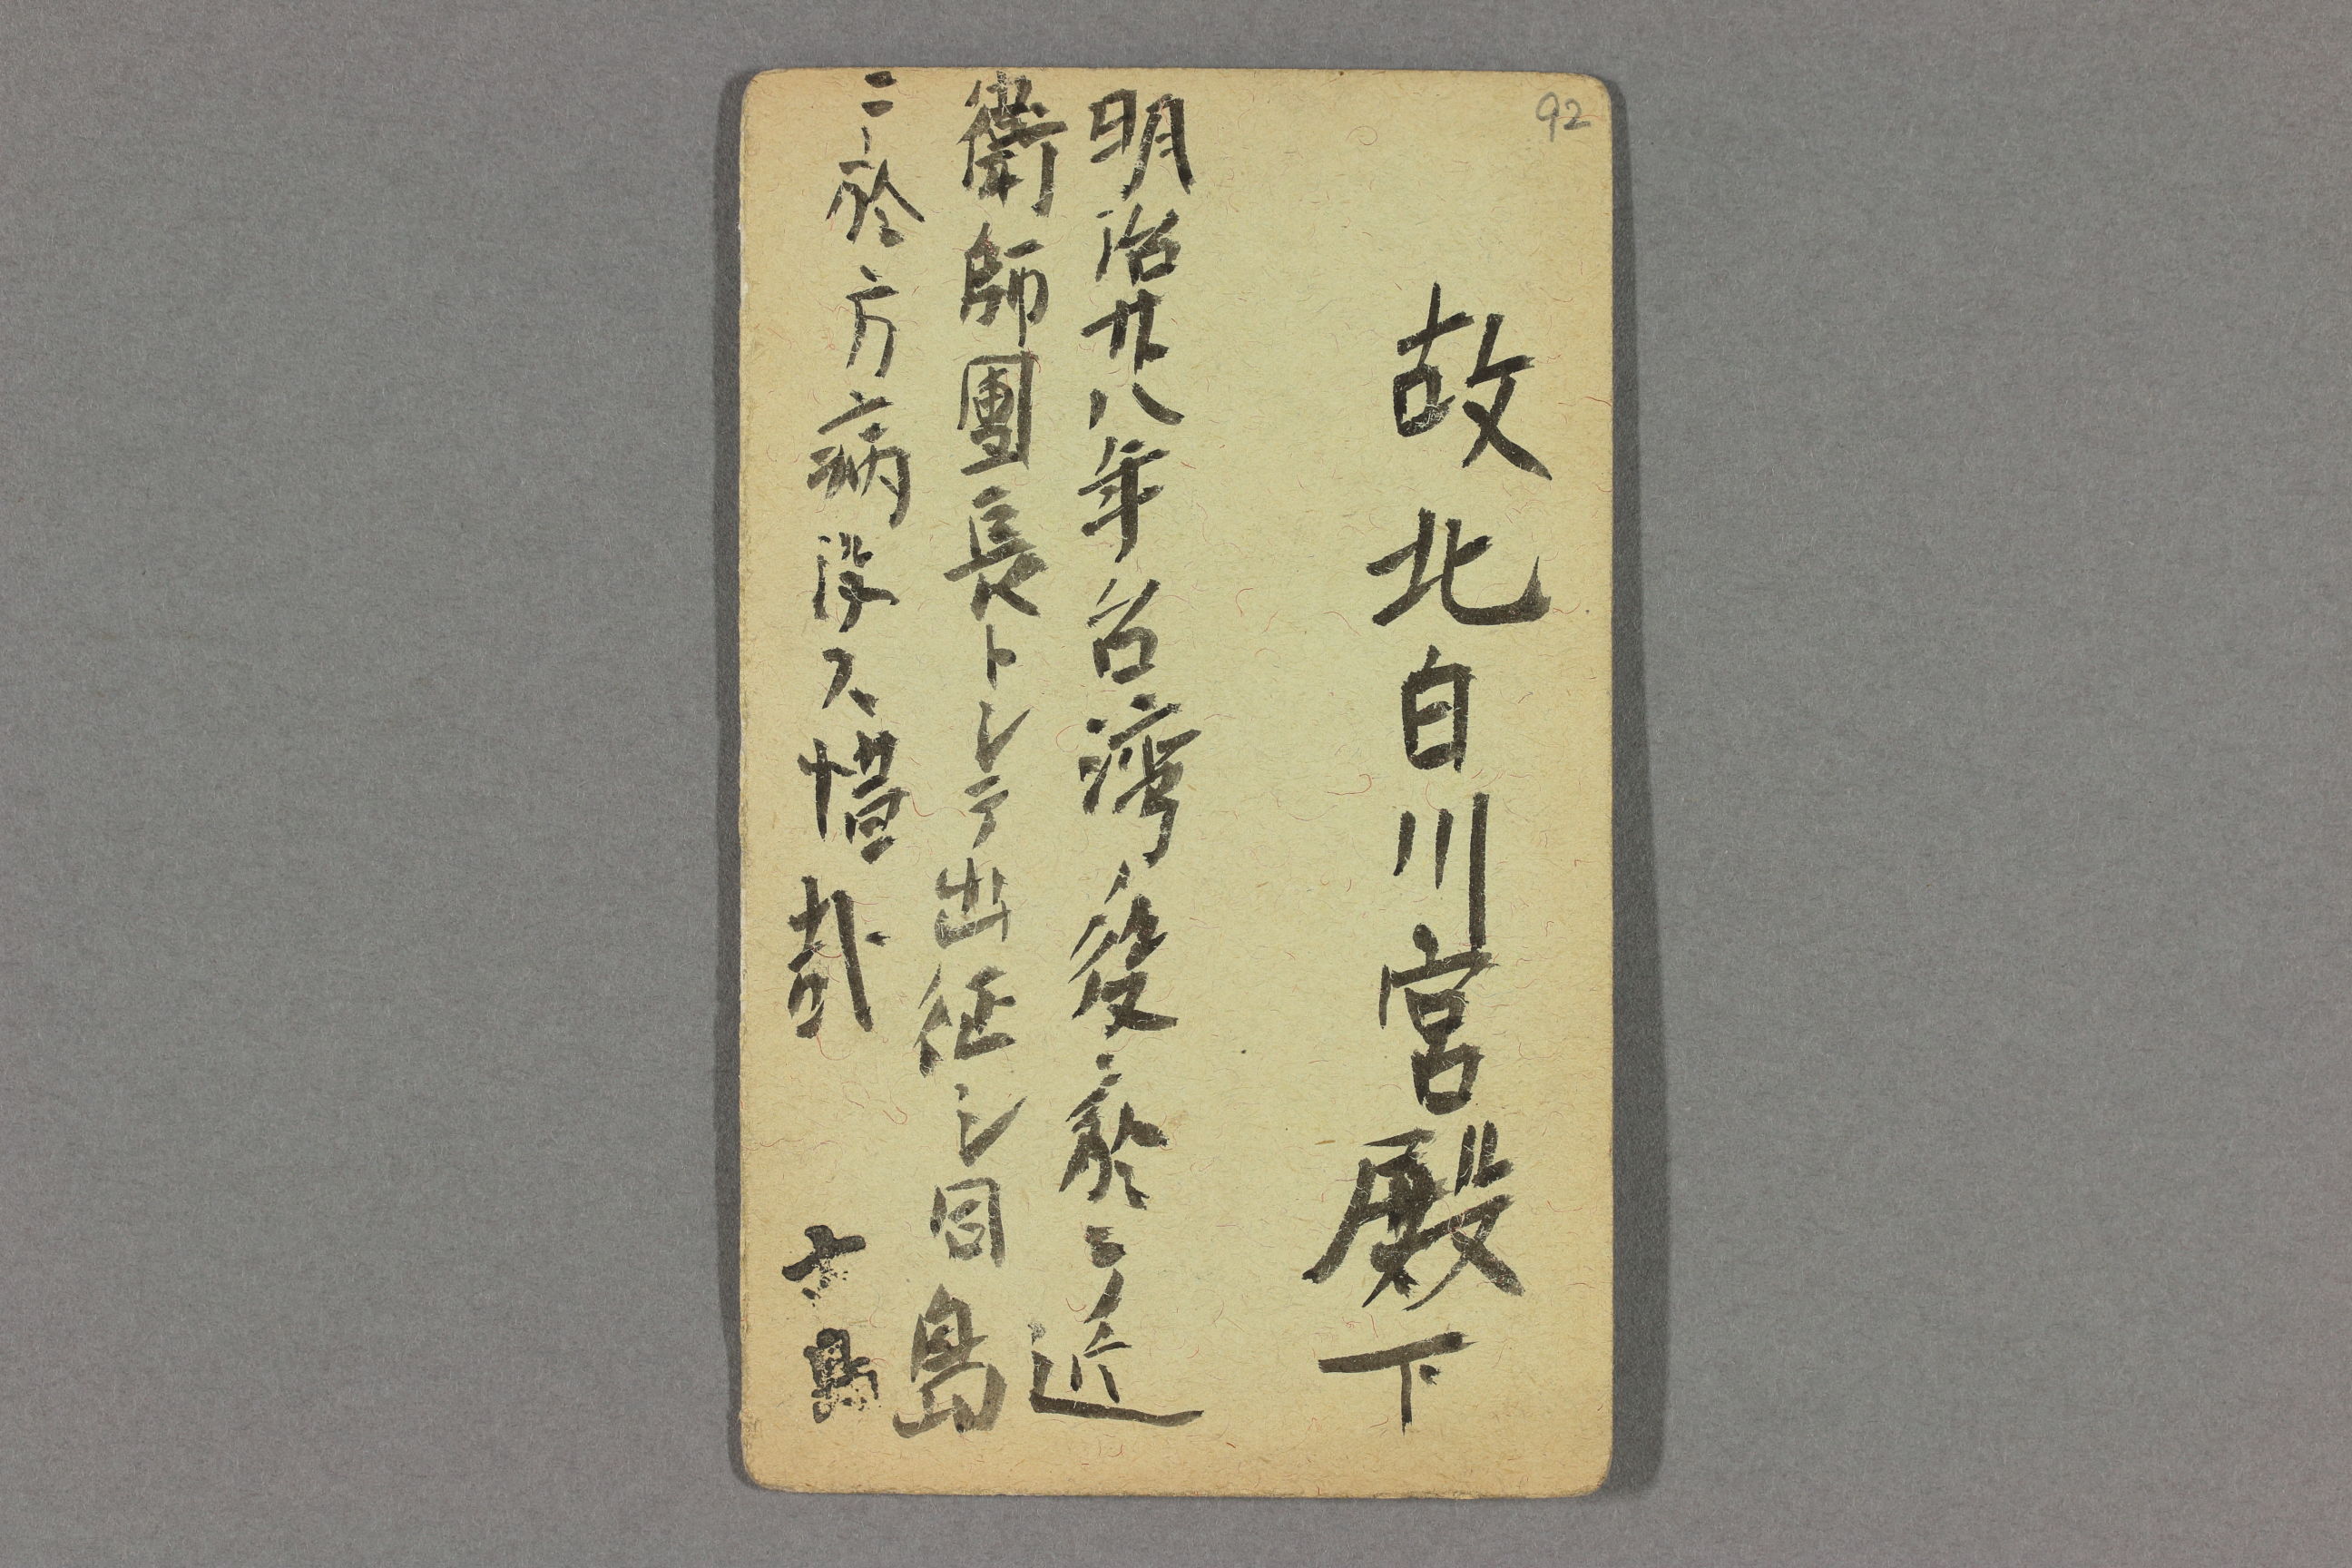 92
故北白川宮殿下
明治廿八年台湾役於テ近
衛師團長トシテ出征シ同島
ニ於テ病没ス惜哉